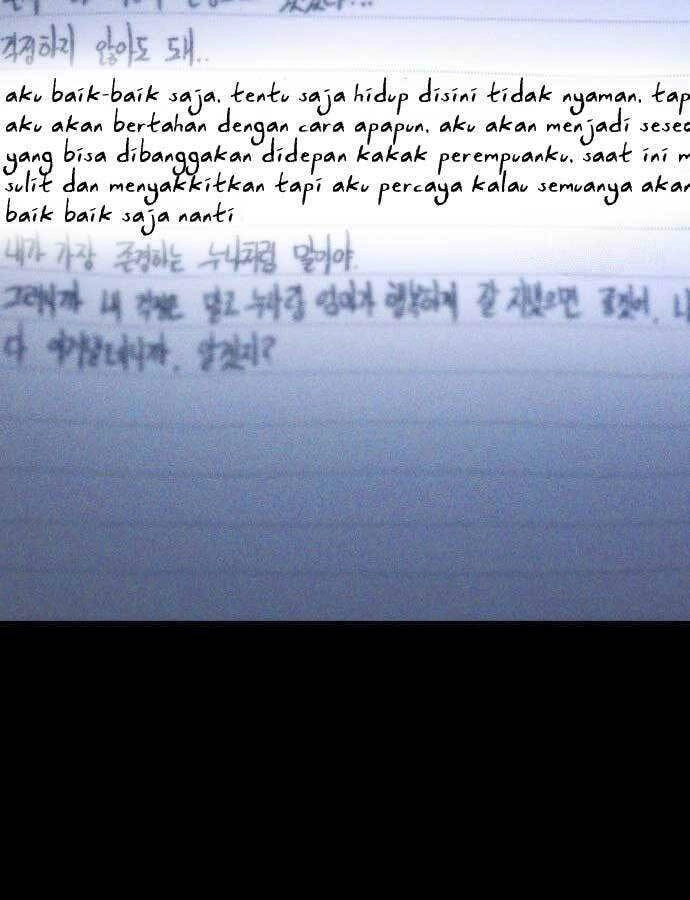 걱정하지 않아도 돼..
aku baik-baik saja. tentu saja hidup disini tidak nyaman. tap
aku akan bertahan dengan cara apapun. aku akan menjadi sese
yang bisa dibanggakan didepan kakak perempuanku. saat ini m
sulit dan menyakkitkan tapi aku percaya kalau semuanya akan
baik baik saja nanti
내가 가장 존경하는 누나처럼 말이야.
그러니까 내 걱정은 말고 누나랑 엄마가 행복하게 잘 지냈으면 좋겠어.
알겠지?